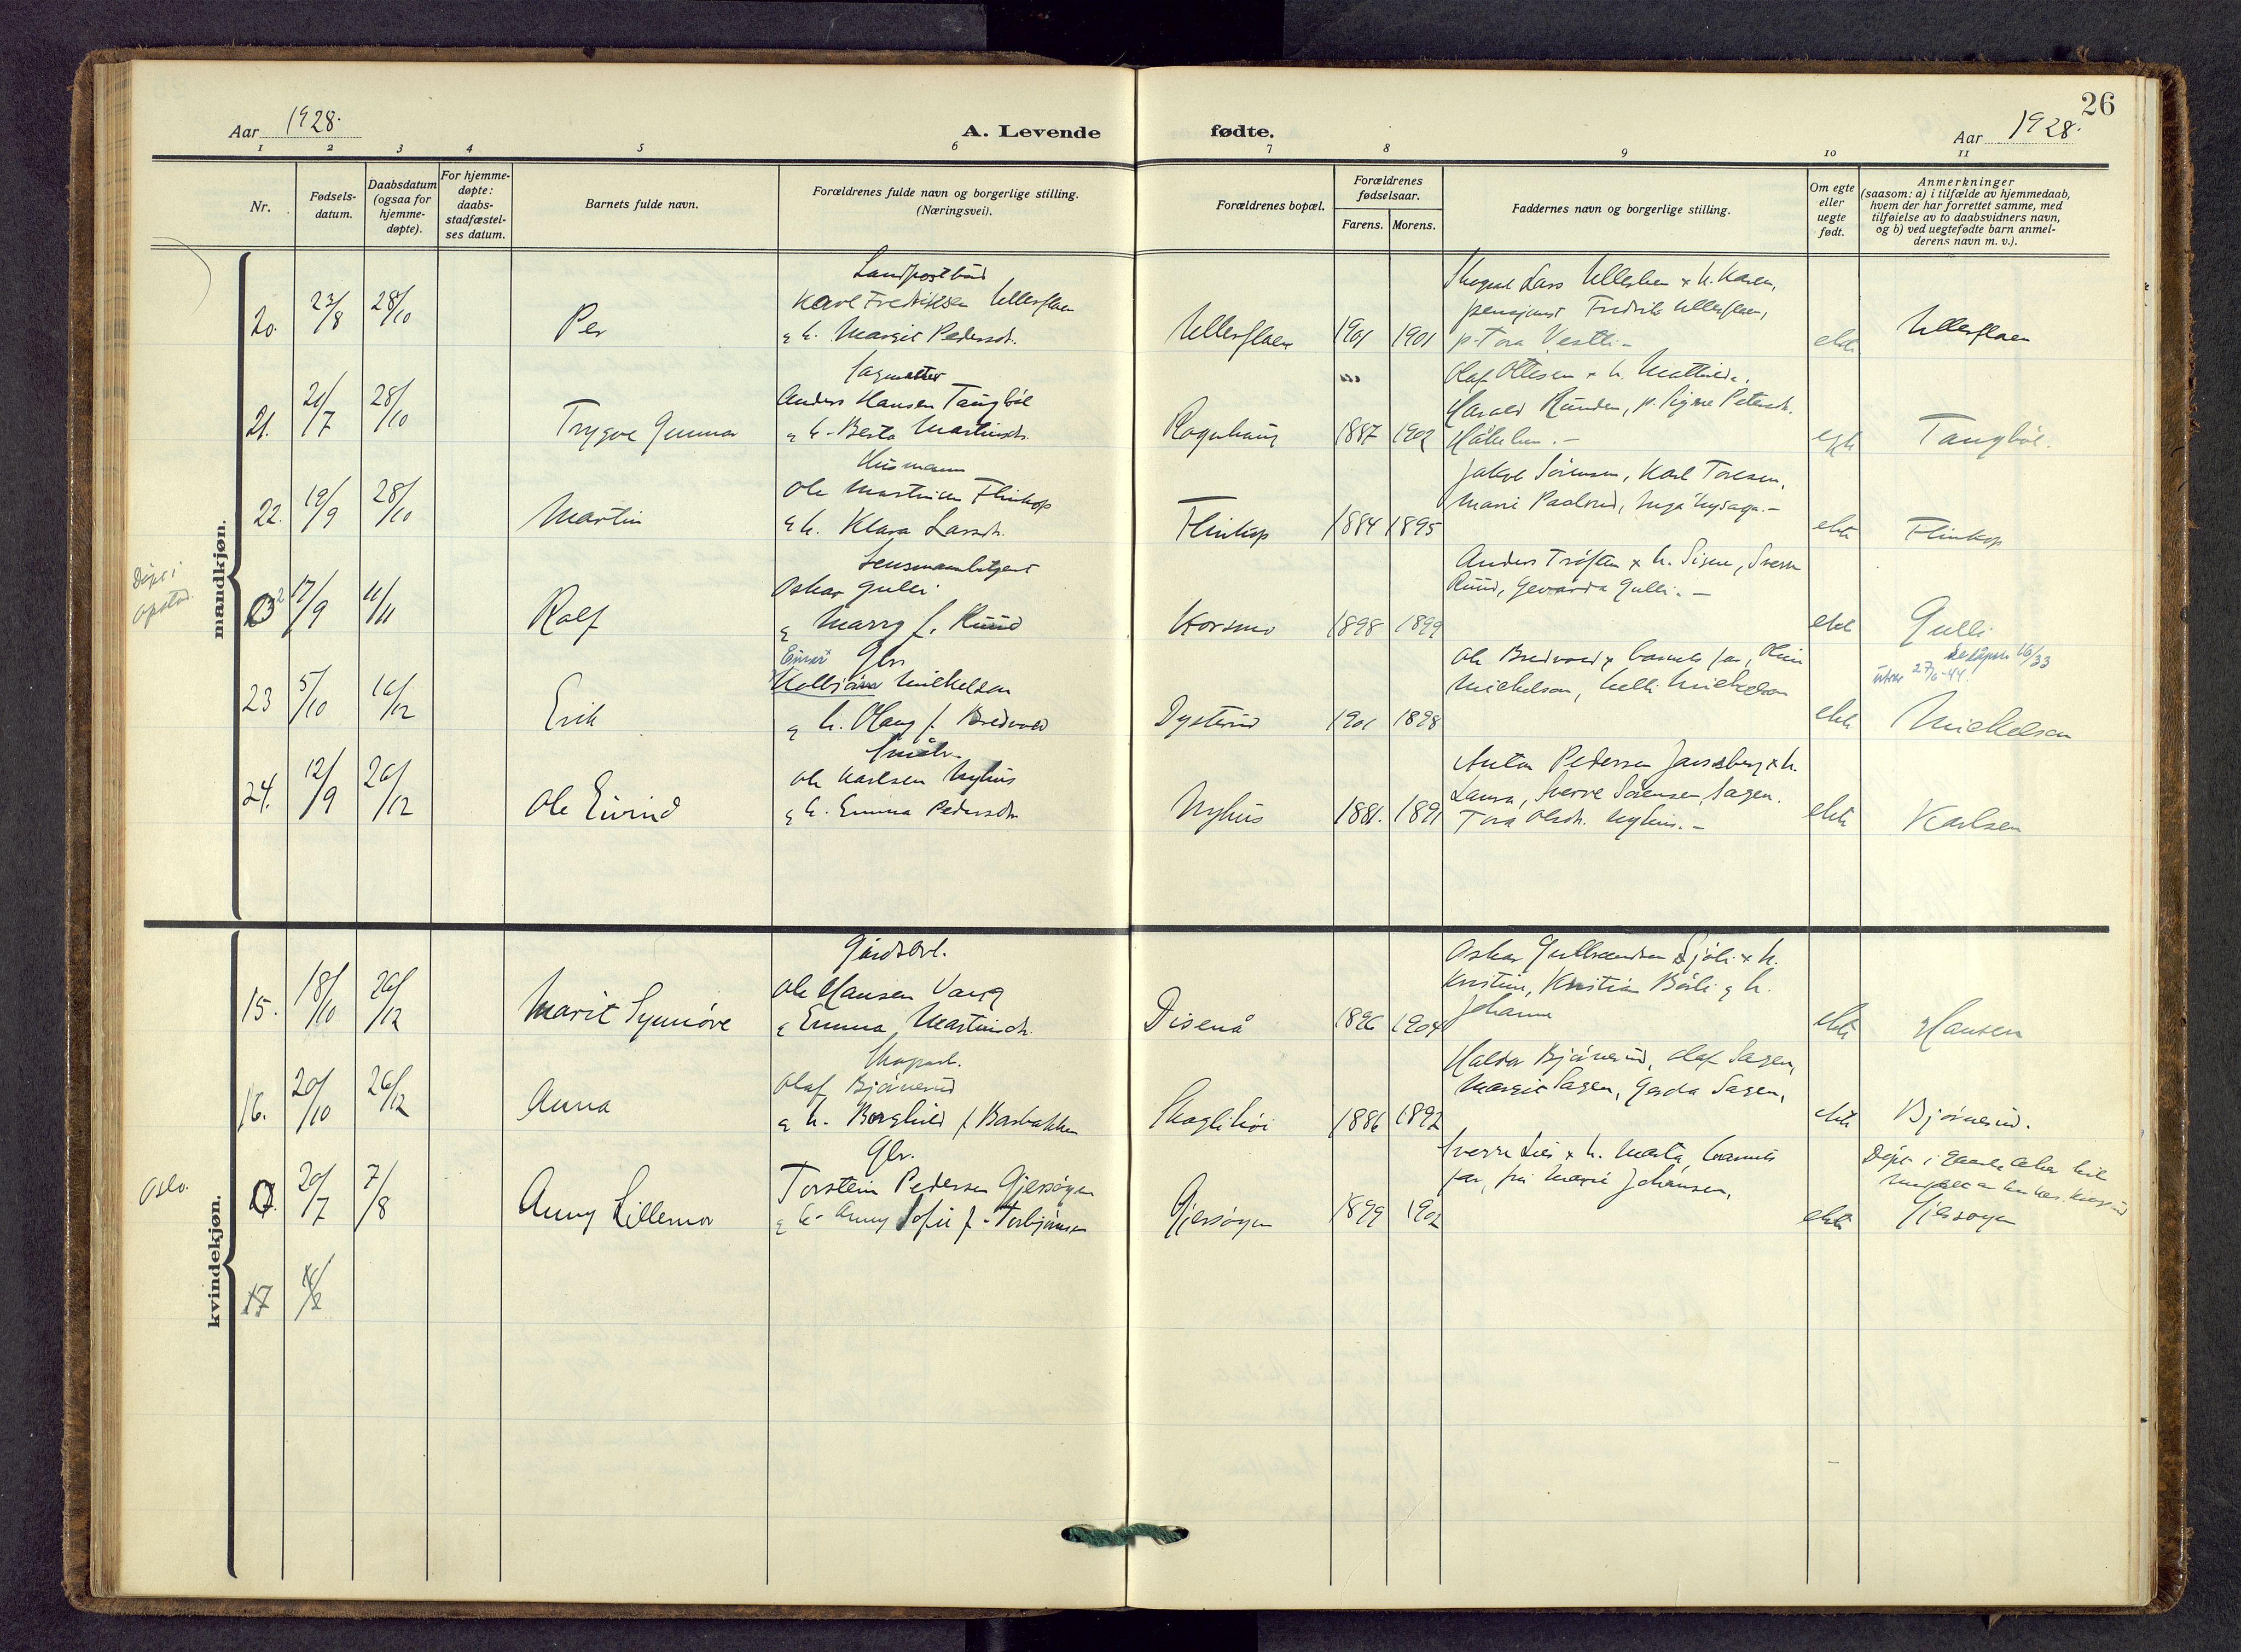 26
Aar 1928.
A. Levende fødte.
Aar 1928.
1 2 3 4 5 6 7 8 9 10 11
Nr.
Fødsels-
datum.
Daabsdatum
(ogsaa for
hjemme-
døpte).
For hjemme-
døpte:
daabs-
stadfæstel-
ses datum.
Barnets fulde navn.
Forældrenes fulde navn og borgerlige stilling.
(Næringsvei).
Forældrenes bopæl.
Forældrenes
fødselsaar.
Farens. Morens.
Faddernes navn og borgerlige stilling.
Om egte
eller
uegte
født.
Anmerkninger
(saasom: a) i tilfælde av hjemmedaab,
hvem der har forrettet samme, med
tilføielse av to daabsvidners navn,
og b) ved uegtefødte barn anmel-
derens navn m. v.).
mandkjøn.
20. 23/8 28/10 Per
Landpostbud
Karl Fredriksen Ullersflaen
& h. Margit Pedersdt.
Ullersflaen 1901 1901
Lars & h. Karen,
Fredrik Ullersflaen,
p. Tora Vestli -
ekte Ullersflaen
21. 21/7 28/10 Trygve Gunnar
Anders Hansen Tangbøl
& h. Berta Martinsdt.
1887 1902
Olaf Ottesen & h. Mathilde,
Harald Runden, p. Signe Petersdt.
Tangbøl.
22. 19/9 28/10 Martin
Husmann
Ole Martinsen Flinkop
& h. Klara Larsdt.
Flinkop 1884 1895
Jakob Sørensen, Karl Toresen,
ekte Flinkop
Døpt i
Opstad.
17/9 11/11 Rolf
Oskar Gulli
& Marry f. Ruud
Korsmo 1898 1899
Anders Trøften & h. Signe, Sverre
Ruud, Gulli. -
ekte Gulli
23 5/10 16/12 Erik
Einar Gbr.
Kolbjørn Michelsen
& h. Olaug f. Bredvold
Dysterud 1901 1898
Ole Bredvold & barnets far,
Michelsen, Michelsen
ekte Michelsen
24. 12/9 26/12 Ole Eivind
Ole Karlsen Nyhus
& h. Emma Pedersdt.
Nyhus 1881. 1891
Anton Pedersen & h.
Laura, Sverre Sørensen, Sagen.
Tora Olsdt. Nyhus. -
ekte Karlsen
kvindekjøn.
15. 18/10 26/12 Marit Synnøve
Gårdsbr.
Ole Hansen Vang
& Emma Martinsdt.
Disenå 1896 1904
Oskar Gulbrandsen & h.
Kristine, Kristian Bøhli & h.
Johanne
ekte Hansen
16. 20/10 26/12 Anna
Skogsarb.
Olaf Bjørnerud
& h. Borghild f. Basbakken
Skoglihøi 1886 1892
Halvor Bjørnerud, Olaf Sagen,
Margit Sagen, Gerda Sagen,
ekte Bjørnerud.
Oslo.
20/7 7/8 Anny Lillemor
Gbr.
Torstein Pedersen Gjersøyen
& h. Anny Sofie f. Torbjørnsen
Gjersøyen 1899 1902
Sverre Lies & h. Marta, barnets
far, fru Marie Johansen,
ekte Gjersøyen
17